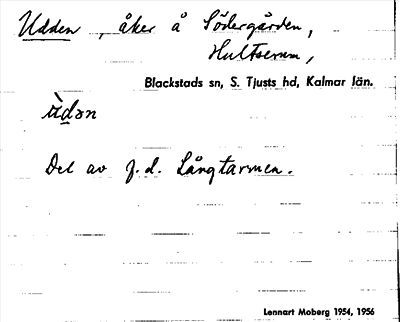 Udden, åker å Södergården,
Hultserum,
Blackstads sn, S. Tjusts hd, Kalmar län.
ùdən
Del av f.d. Långtarmen.
Lennart Moberg 1954, 1956